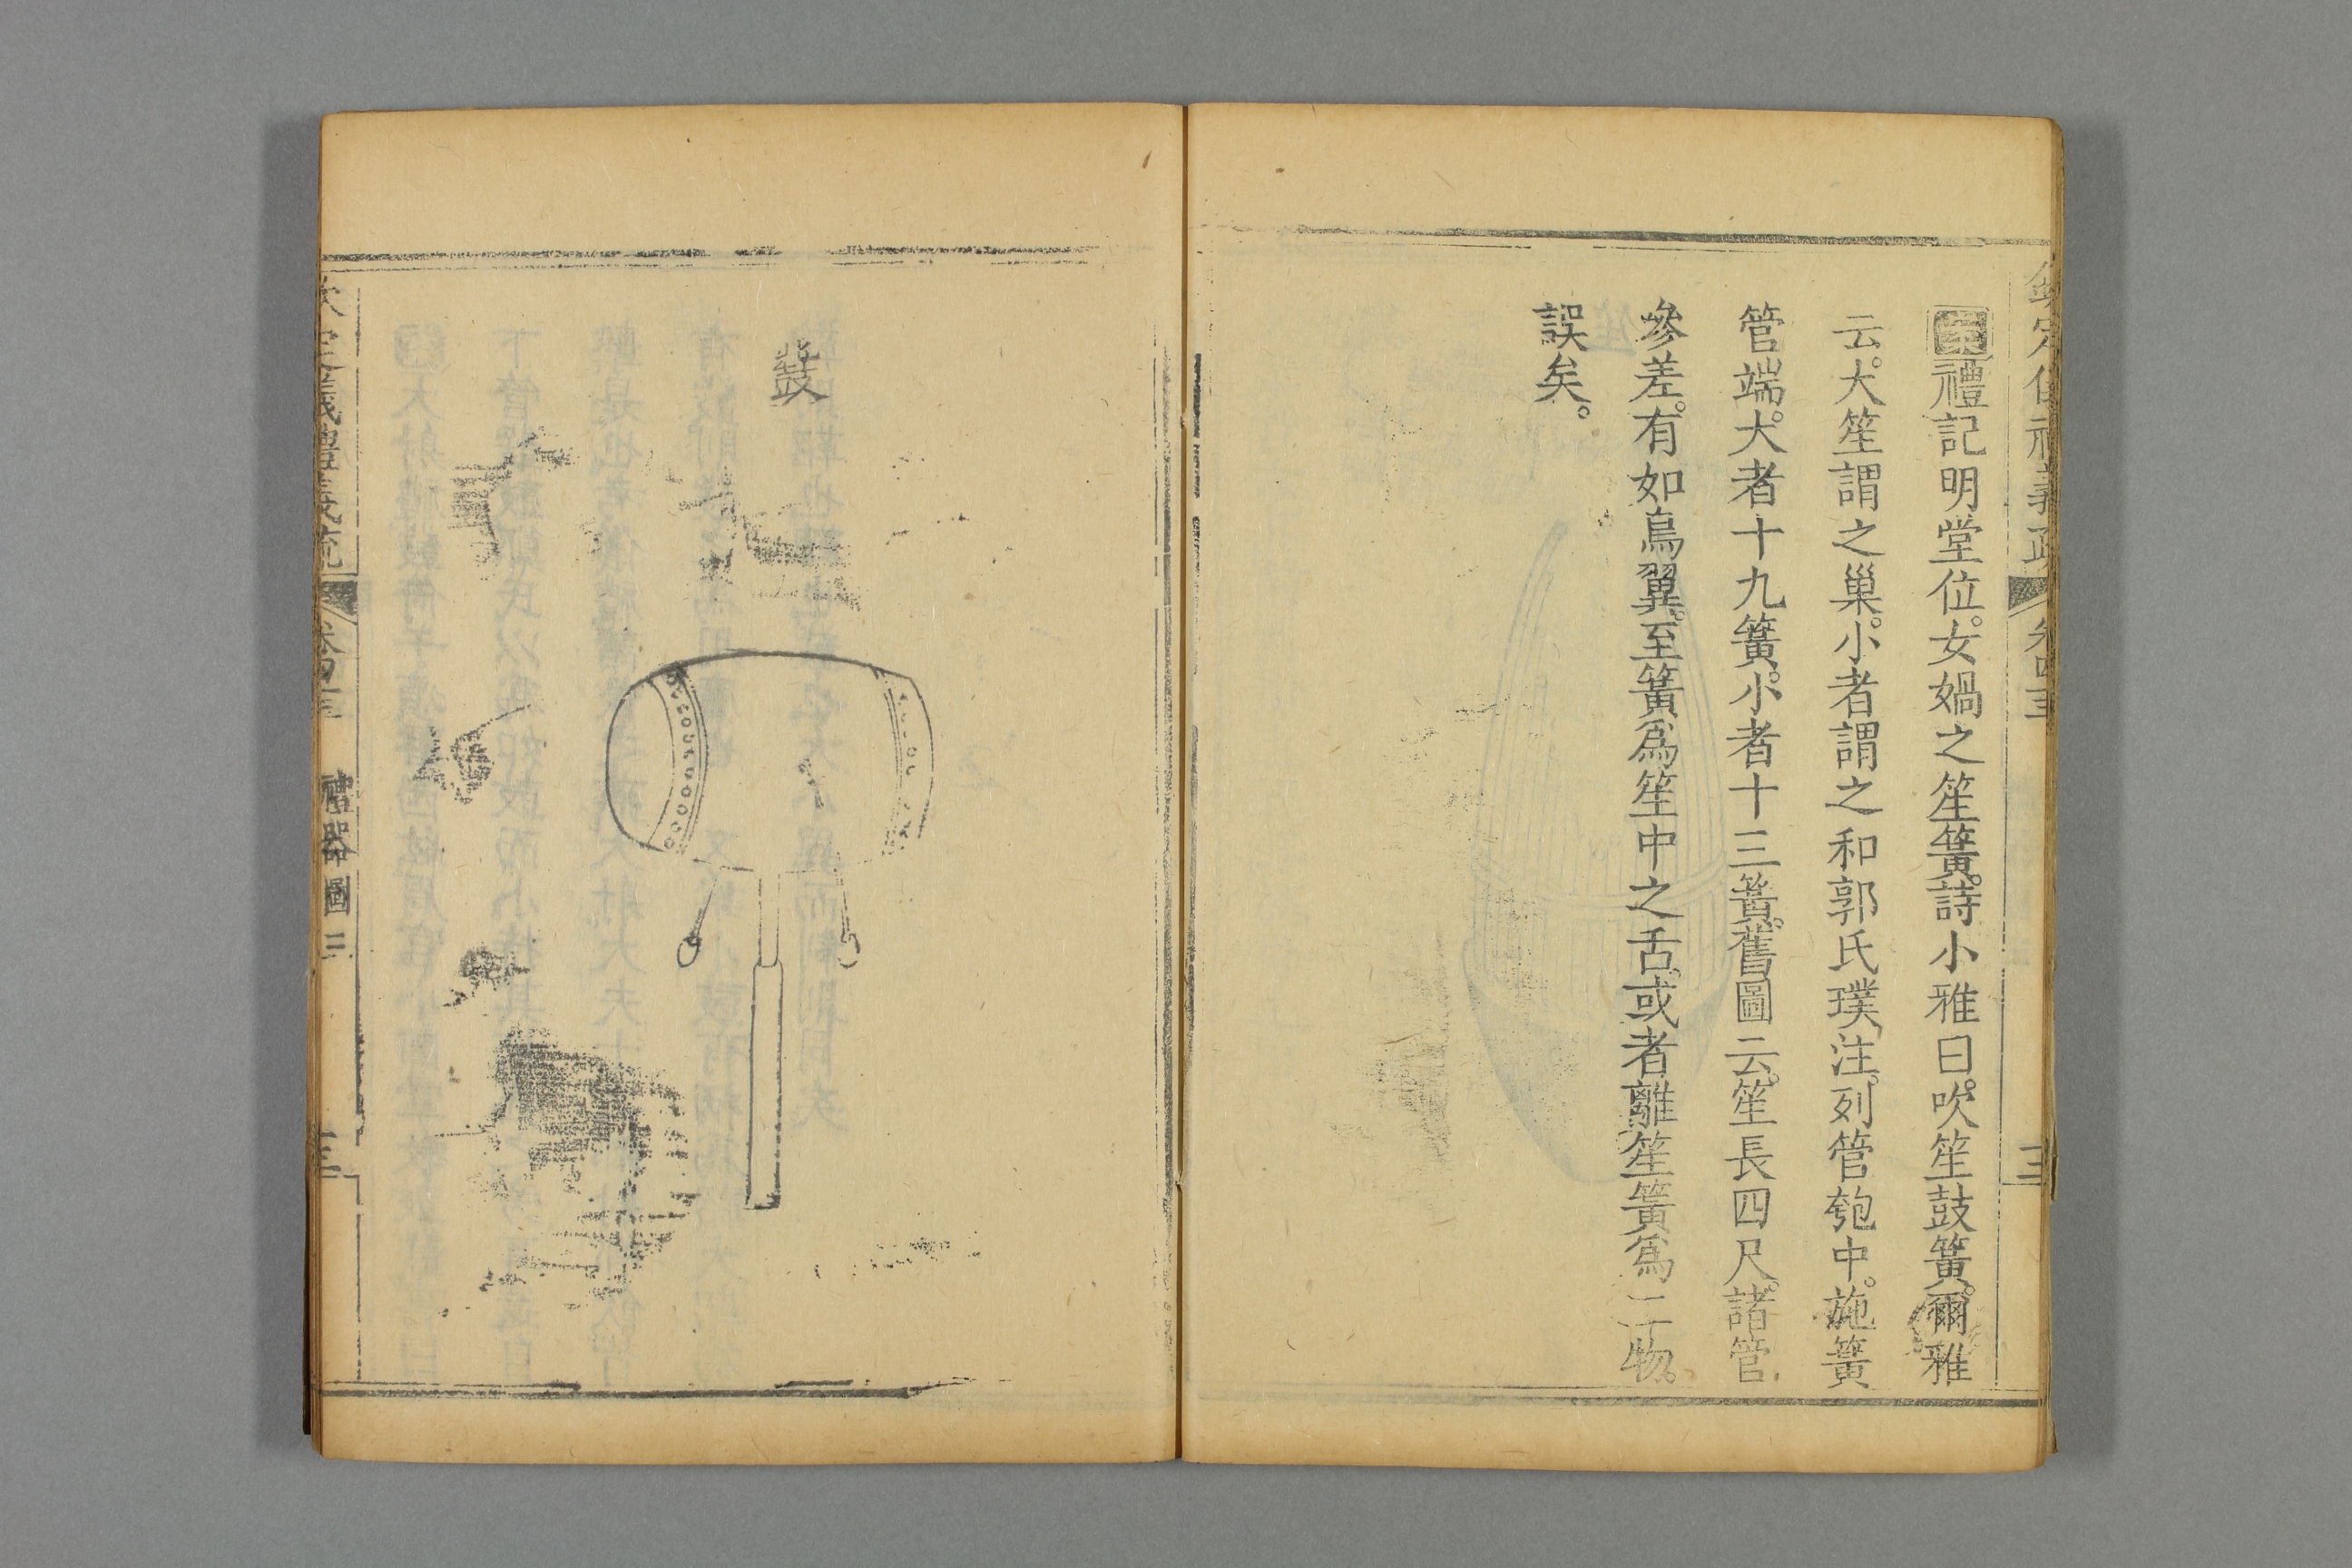 案禮記明堂位。女媧之笙簧。詩小雅曰。吹笙鼓簧。爾雅
云。大笙謂之巢。小者謂之和郭氏璞注。列管匏中。施簧
管端。大者十九簧。小者十三簧。舊圖云。笙長四尺。諸管
參差。有如鳥翼。至簧爲笙中之舌。或者離笙簧爲二物。
誤矣。
鼗
禮器圖三